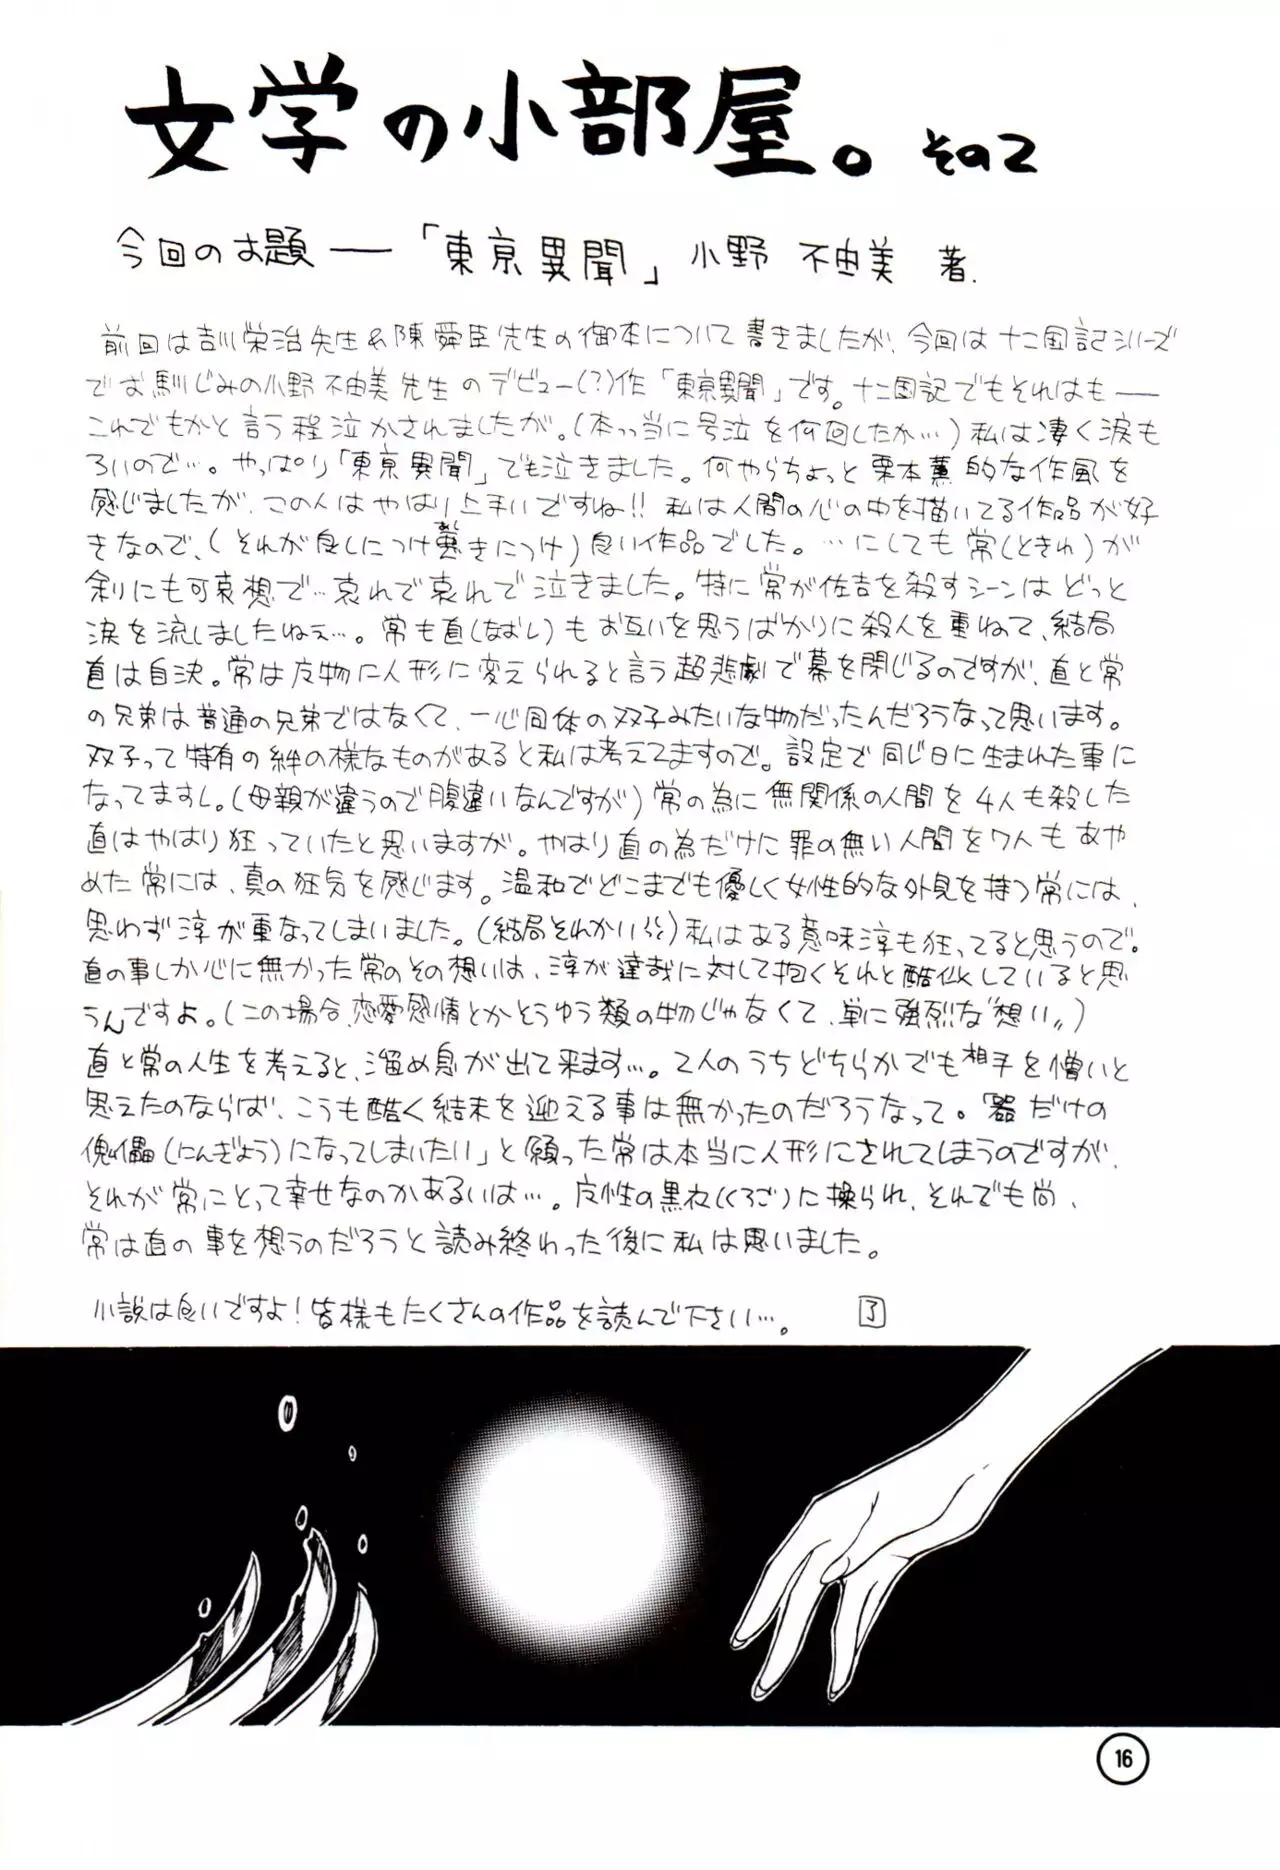 文学の小部屋。その2
今回のお題──「東亰異聞」小野 不由美 著.
前回は吉川栄治先生&陳舜臣先生の御本について書きましたが、今回は十二国記シリーズ
でお馴じみの小野不由美先生のデビュー(?)作「東亰異聞」です。十二国記でもそれはも──
これでもかと言う程泣かされましたが。(本っ当に号泣を何回したか…)私は凄く涙も
ろいので…。やっぱり「東亰異聞」でも泣きました。何やらちょっと栗本薫的な作風を
感じましたが、この人はやはり上手いですね!!私は人間の心の中を描いてる作品が好
きなので、(それが良しにつけ悪きにつけ)良い作品でした。…にしても常(ときわ)が
余りにも可哀想で…哀れで哀れで泣きました。特に常が佐吉を殺すシーンはどっと
涙を流しましたねぇ…。常も直(なおし)もお互いを思うばかりに殺人を重ねて、結局
直は自決。常は左物に人形に変えられると言う超悲劇で幕を閉じるのですが、直と常
の兄弟は普通の兄弟ではなくて、一心同体の双子みたいな物だったんだろうなって思います。
双子って特有の絆の様なものがあると私は考えてますので。設定で同じ日に生まれた事に
なってますし。(母親が違うので腹違いなんですが)常の為に無関係の人間を4人も殺した
直はやはり狂っていたと思いますが。やはり直の為だけに罪の無い人間を7人もあや
めた常には、真の狂気を感じます。温和でどこまでも優しく女性的な外見を持つ常には、
思わず淳が重なってしまいました。(結局それかい)私はある意味淳も狂ってると思うので。
直の事しか心に無かった常のその想いは、淳が達哉に対して抱くそれと酷似していると思
うんですよ。(この場合、恋愛感情とかそうゆう類の物じゃなくて、単に強烈な〝想い〟)
直と常の人生を考えると、溜め息が出て来ます…。2人のうちどちらかでも相手を憎いと
思えたのならば、こうも酷く結末を迎える事は無かったのだろうなって。「器だけの
傀儡(にんぎょう)になってしまいたい」と願った常は本当に人形にされてしまうのですが、
それが常にとって幸せなのかあるいは…。左性の黒衣(くろご)に操られ、それでも尚、
常は直の事を想うのだろうと読み終わった後に私は思いました。
小説は良いですよ!皆様もたくさんの作品を読んで下さい…。 了
16